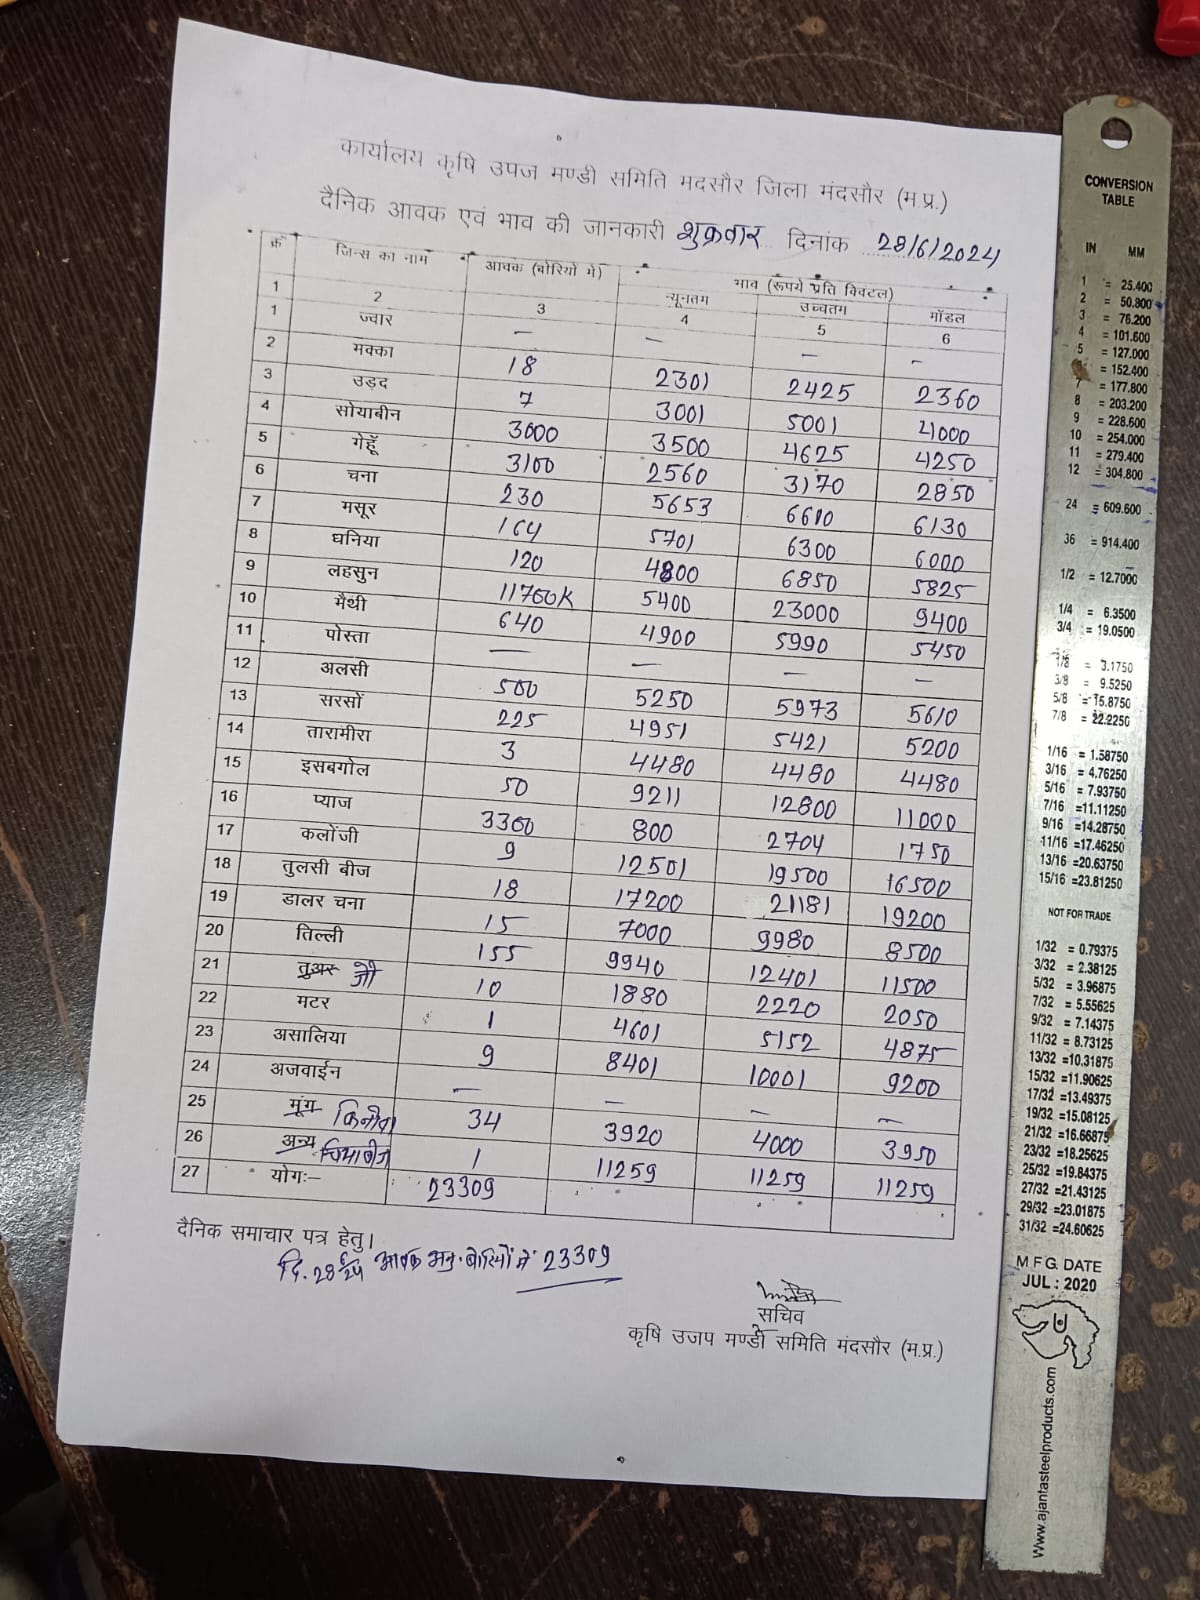 कार्यालय कृषि उपज मण्डी समिति मदसौर जिला मंदसौर (म.प्र.)
दैनिक आवक एवं भाव की जानकारी शुक्रवार दिनांक 28/6/2024
क्रं जिन्स का नाम आवक (बोरियो में) भाव (रूपये प्रति क्विटल)
न्यूनतम उच्चतम मॉडल
1 2 3 4 5 6
1 ज्वार — — — —
2 मक्का 18 2301 2425 2360
3 उड़द 7 3001 5001 4000
4 सोयाबीन 3000 3500 4625 4250
5 गेहूँ 3100 2560 3170 2850
6 चना 230 5653 6610 6130
7 मसूर 164 5701 6300 6000
8 धनिया 120 4800 6850 5825
9 लहसुन 11700K 5400 23000 9400
10 मैथी 640 4900 5990 5450
11 पोस्ता — — — —
12 अलसी 500 5250 5973 5610
13 सरसों 225 4951 5421 5200
14 तारामीरा 3 4480 4480 4480
15 इसबगोल 50 9211 12800 11000
16 प्याज 3300 800 2704 1750
17 कलोंजी 9 12501 19500 16500
18 तुलसी बीज 18 17200 21181 19200
19 डालर चना 15 7000 9980 8500
20 तिल्ली 155 9940 12401 11500
21 तुअर जौ 10 1880 2220 2050
22 मटर 1 4601 5152 4875
23 असालिया 9 8401 10001 9200
24 अजवाईन — — — —
25 मूंग किनोवा 34 3920 4000 3950
26 अन्य चियाबीज 1 11259 11259 11259
27 योगः– 23309
दैनिक समाचार पत्र हेतु।
दि. 28 6/24 आवक अनु. बोरियों में 23309
सचिव
कृषि उजप मण्डी समिति मंदसौर (म.प्र.)
CONVERSION
TABLE
IN MM
1 = 25.400
2 = 50.800
3 = 76.200
4 = 101.600
5 = 127.000
= 152.400
7 = 177.800
8 = 203.200
9 = 228.600
10 = 254.000
11 = 279.400
12 = 304.800
24 = 609.600
36 = 914.400
1/2 = 12.7000
1/4 = 6.3500
3/4 = 19.0500
1/8 = 3.1750
3/8 = 9.5250
5/8 = 15.8750
7/8 = 22.2250
1/16 = 1.58750
3/16 = 4.76250
5/16 = 7.93750
7/16 =11.11250
9/16 =14.28750
11/16 =17.46250
13/16 =20.63750
15/16 =23.81250
NOT FOR TRADE
1/32 = 0.79375
3/32 = 2.38125
5/32 = 3.96875
7/32 = 5.55625
9/32 = 7.14375
11/32 = 8.73125
13/32 =10.31875
15/32 =11.90625
17/32 =13.49375
19/32 =15.08125
21/32 =16.66875
23/32 =18.25625
25/32 =19.84375
27/32 =21.43125
29/32 =23.01875
31/32 =24.60625
MFG. DATE
JUL : 2020
www.ajantasteelproducts.com